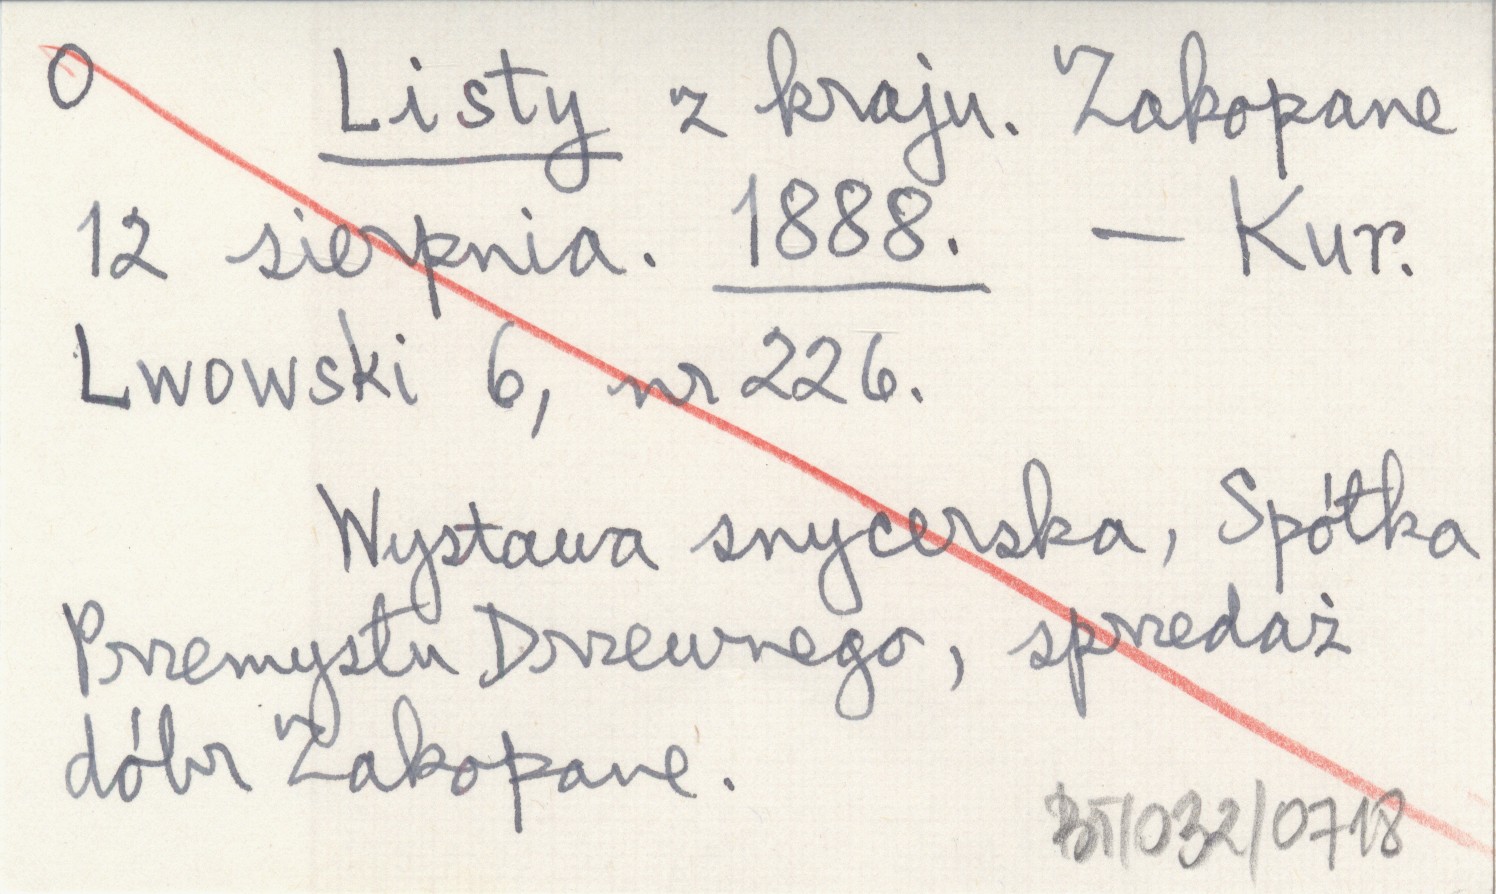 O Listy z kraju. Zakopane
12 sierpnia. 1888. — Kur.
Lwowski 6, nr 226.
Wystawa snycerska, Spółka
Przemysłu Drzewnego, sprzedaż
dóbr Zakopane.
BT/032/0718